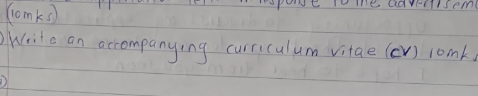 response to the advertisem
(10mks)
) Write an accompanying curriculum vitae (CV) 10mk
)